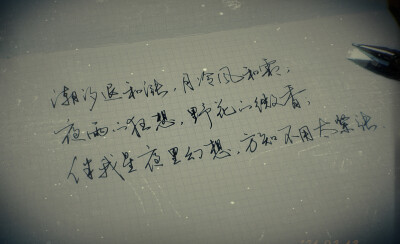 潮汐退和涨,月冷风和霜,
夜雨的狂想,野花的微香,
伴我星夜里幻想,方知不用太紧张.